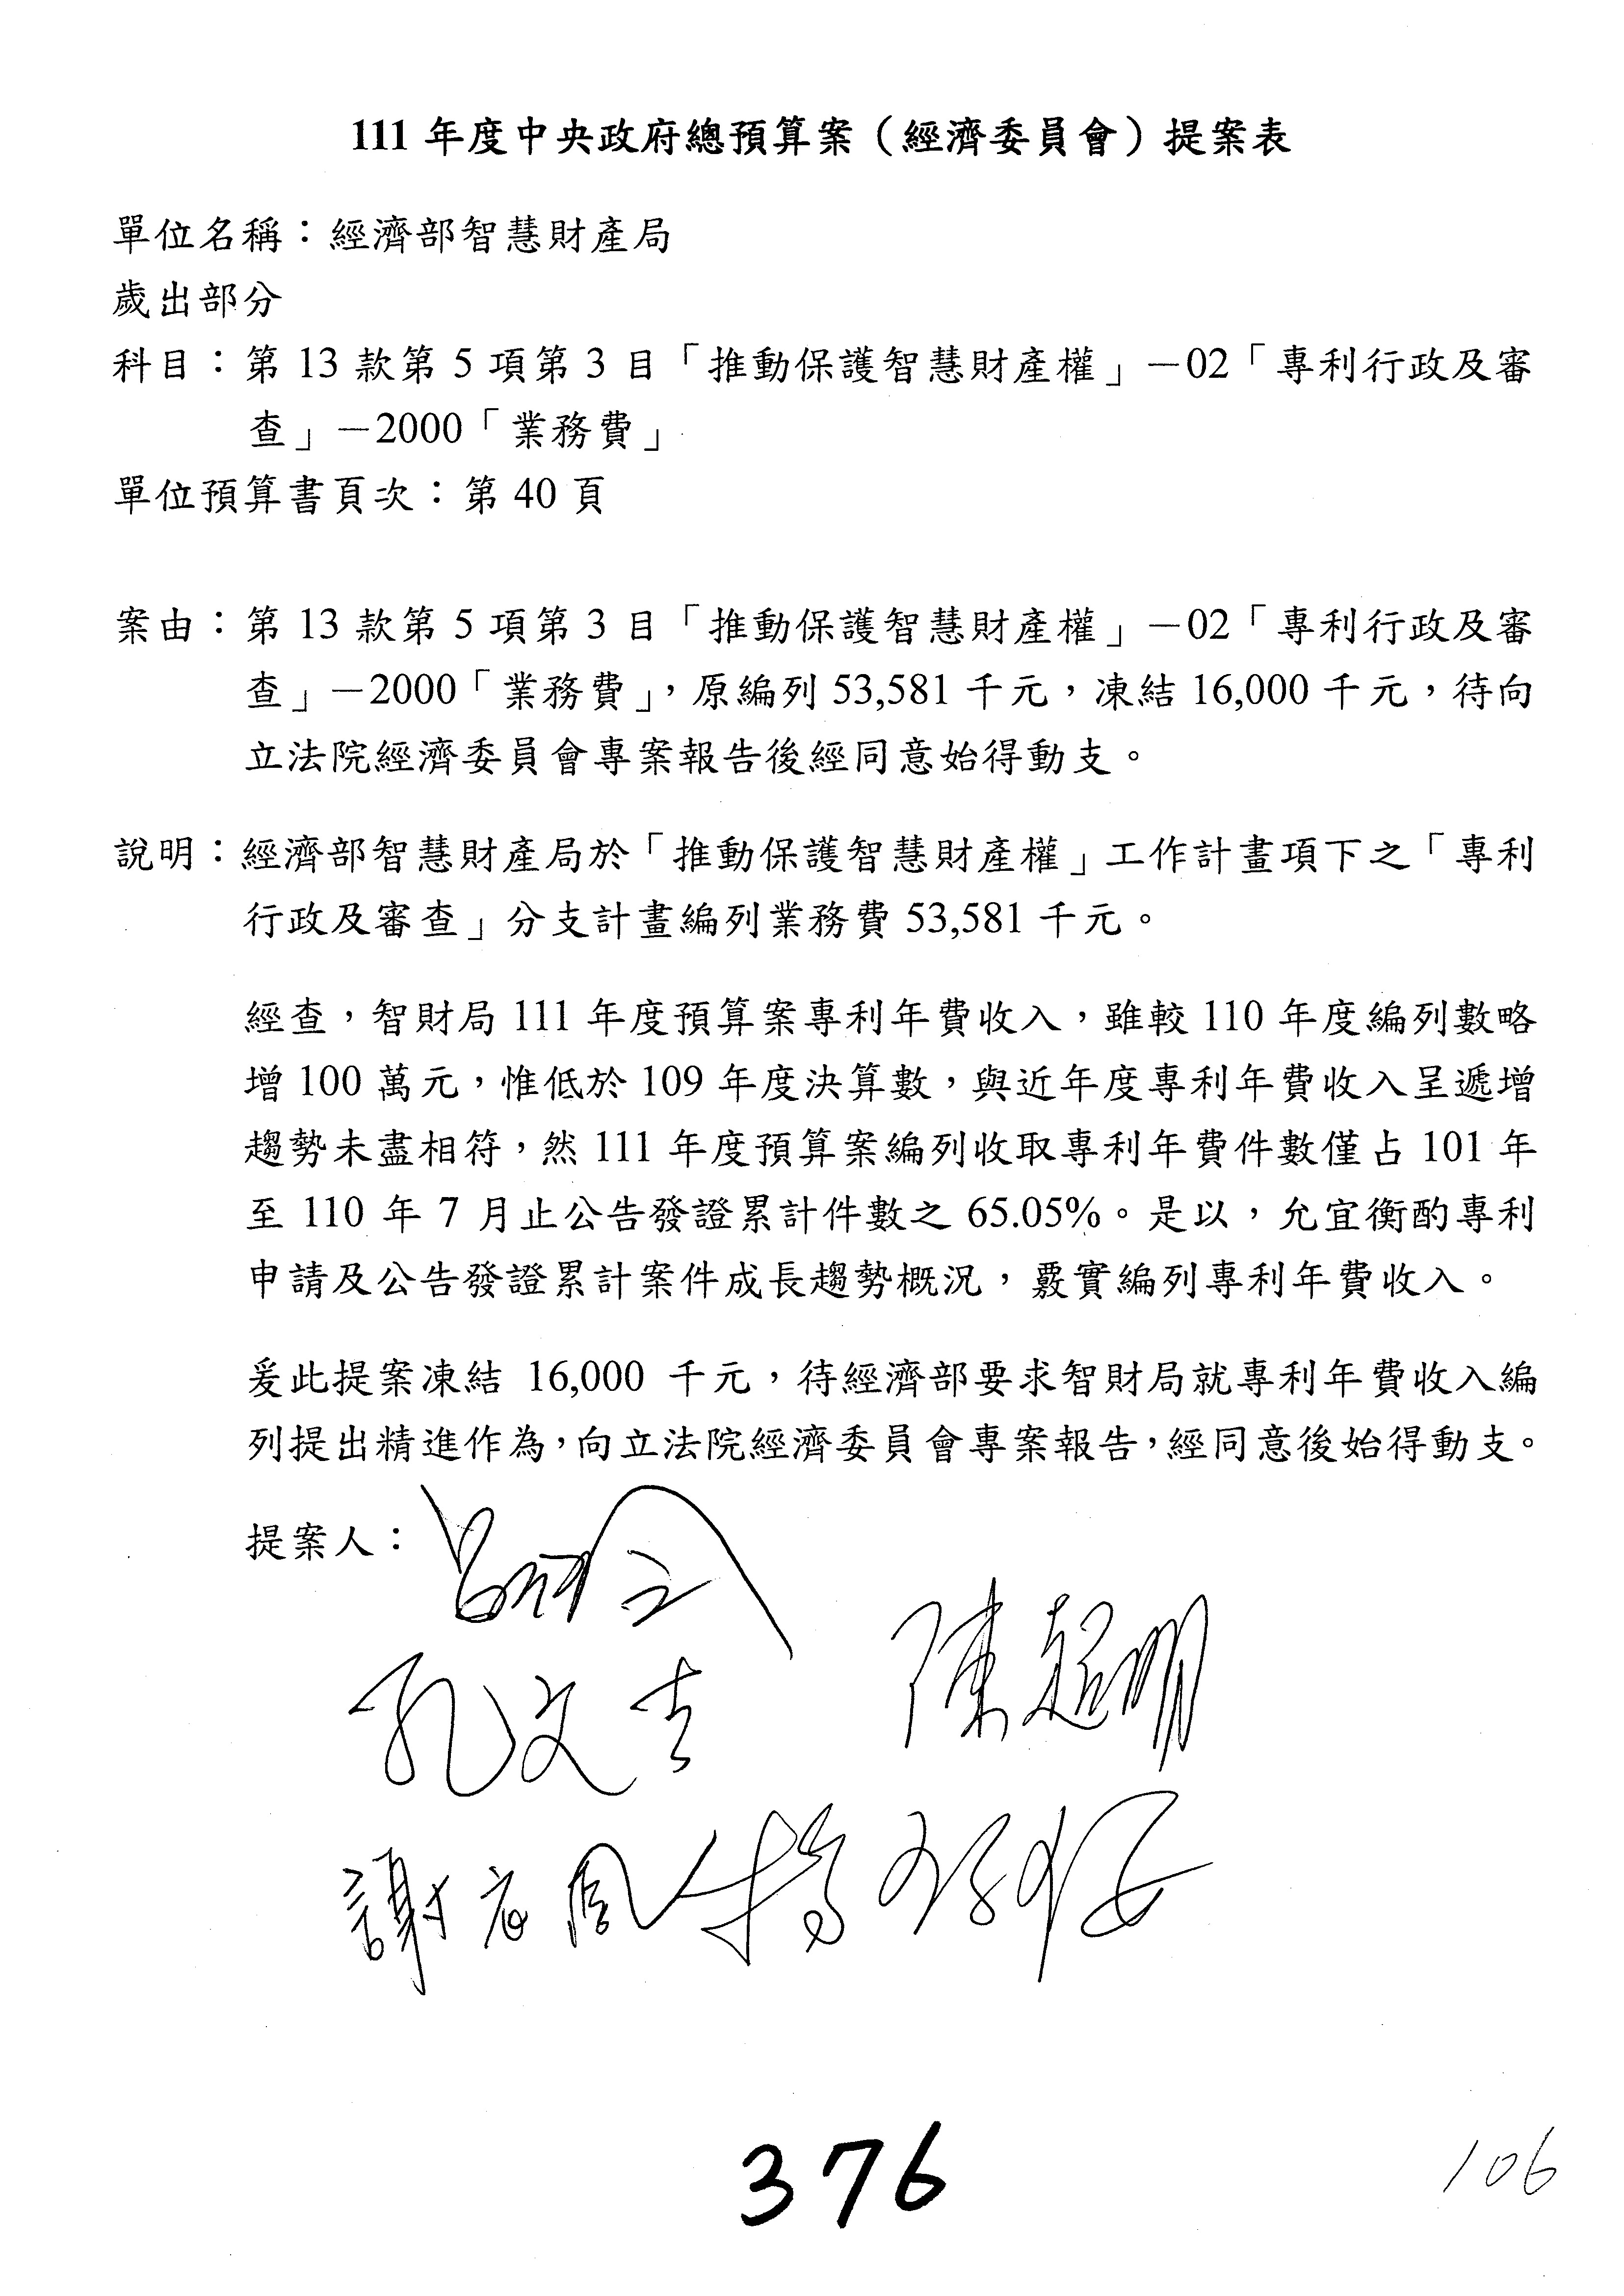 111 年度中央政府總預算案（經濟委員會）提案表
單位名稱：經濟部智慧財產局
歲出部分
科目：第 13 款第 5 項第 3 目「推動保護智慧財產權」－02「專利行政及審
查」－2000「業務費」
單位預算書頁次：第 40 頁
案由：第 13 款第 5 項第 3 目「推動保護智慧財產權」－02「專利行政及審
查」－2000「業務費」，原編列 53,581 千元，凍結 16,000 千元，待向
立法院經濟委員會專案報告後經同意始得動支。
說明：經濟部智慧財產局於「推動保護智慧財產權」工作計畫項下之「專利
行政及審查」分支計畫編列業務費 53,581 千元。
經查，智財局 111 年度預算案專利年費收入，雖較 110 年度編列數略
增 100 萬元，惟低於 109 年度決算數，與近年度專利年費收入呈遞增
趨勢未盡相符，然 111 年度預算案編列收取專利年費件數僅占 101 年
至 110 年 7 月止公告發證累計件數之 65.05%。是以，允宜衡酌專利
申請及公告發證累計案件成長趨勢概況，覈實編列專利年費收入。
爰此提案凍結 16,000 千元，待經濟部要求智財局就專利年費收入編
列提出精進作為，向立法院經濟委員會專案報告，經同意後始得動支。
提案人：
孔文吉 陳超明
謝衣鳳
376
106